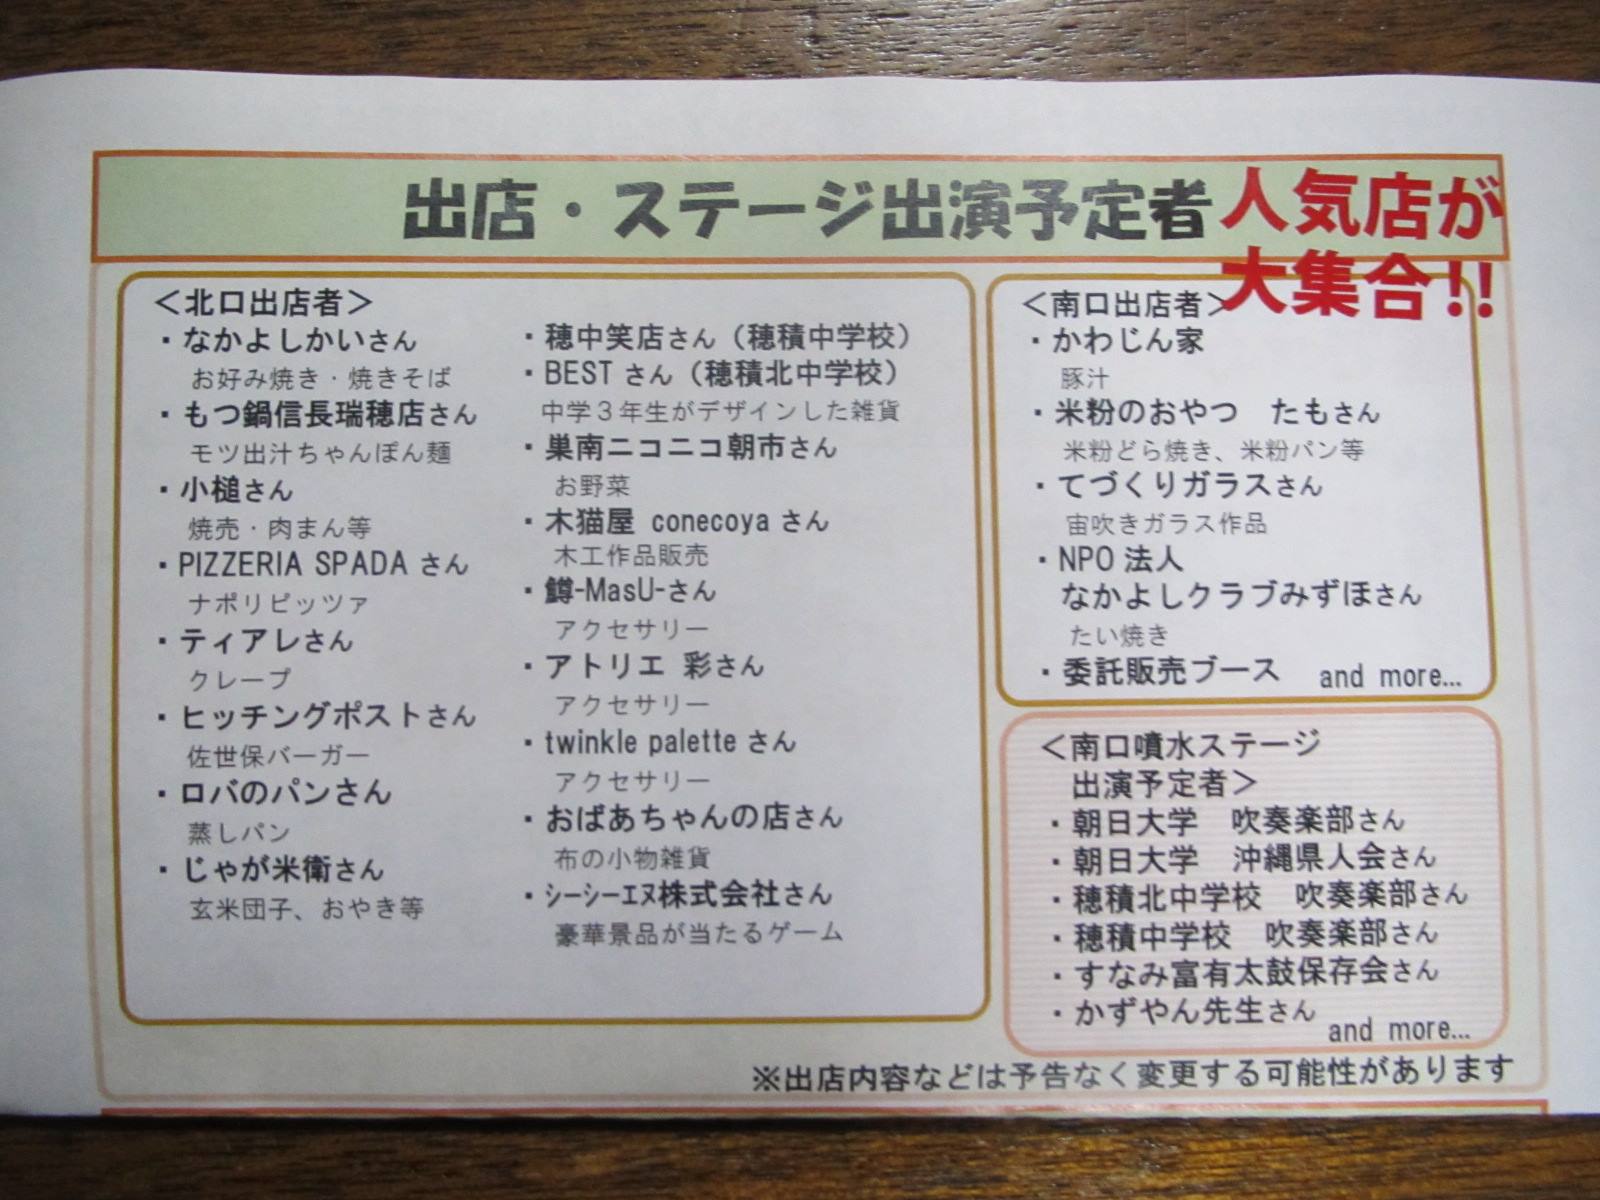 出店・ステージ出演予定者
人気店が
大集合!!
＜北口出店者＞
・なかよしかいさん
お好み焼き・焼きそば
・もつ鍋信長瑞穂店さん
モツ出汁ちゃんぽん麺
・小槌さん
焼売・肉まん等
・PIZZERIA SPADA さん
ナポリピッツァ
・ティアレさん
クレープ
・ヒッチングポストさん
佐世保バーガー
・ロバのパンさん
蒸しパン
・じゃが米衛さん
玄米団子、おやき等
・穂中笑店さん（穂積中学校）
・BEST さん（穂積北中学校）
中学３年生がデザインした雑貨
・巣南ニコニコ朝市さん
お野菜
・木猫屋 conecoya さん
木工作品販売
・鱒-MasU-さん
アクセサリー
・アトリエ 彩さん
アクセサリー
・twinkle palette さん
アクセサリー
・おばあちゃんの店さん
布の小物雑貨
・ｼｰｼｰｴﾇ株式会社さん
豪華景品が当たるゲーム
＜南口出店者＞
・かわじん家
豚汁
・米粉のおやつ　たもさん
米粉どら焼き、米粉パン等
・てづくりガラスさん
宙吹きガラス作品
・NPO 法人
なかよしクラブみずほさん
たい焼き
・委託販売ブース　and more…
＜南口噴水ステージ
出演予定者＞
・朝日大学　吹奏楽部さん
・朝日大学　沖縄県人会さん
・穂積北中学校　吹奏楽部さん
・穂積中学校　吹奏楽部さん
・すなみ富有太鼓保存会さん
・かずやん先生さん
and more…
※出店内容などは予告なく変更する可能性があります